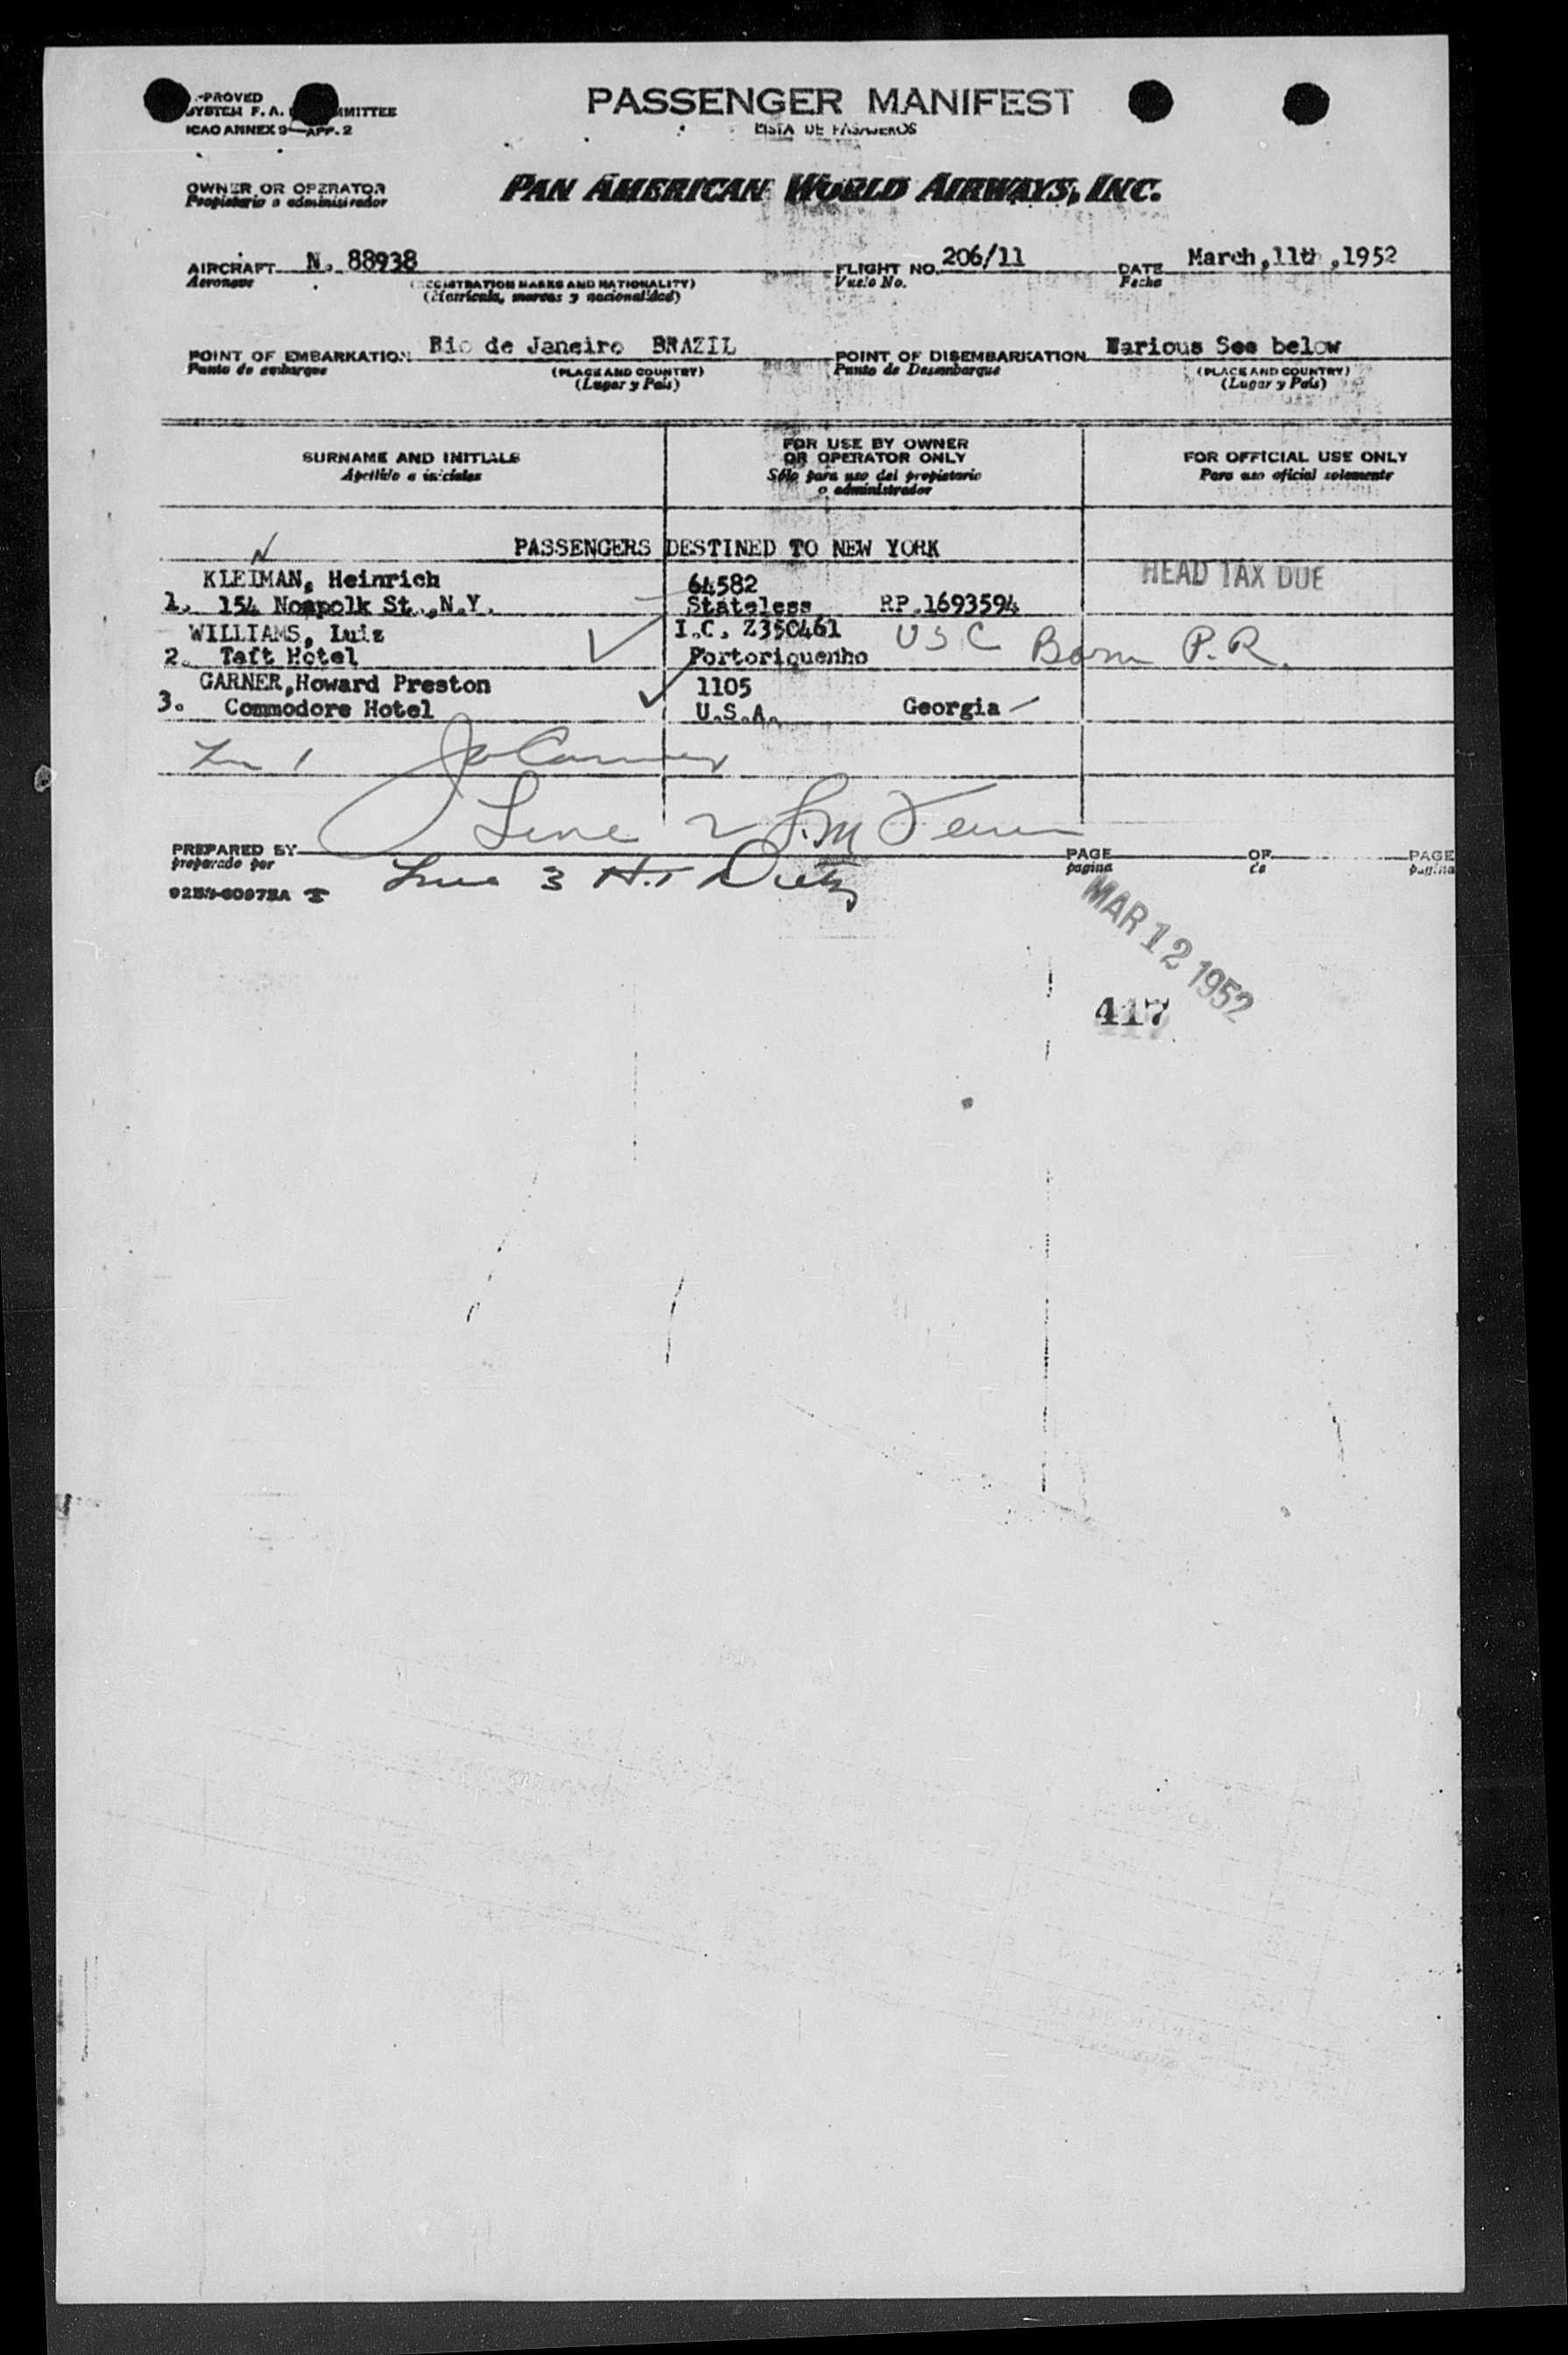 PASSENGER MANIFEST
LISTA DE PASAJEROS
-PROVED
SYSTEM F. A. MMITTEE
ICAO ANNEX 9—APP. 2
OWNER OR OPERATOR
Propietario o administrador
PAN AMERICAN WORLD AIRWAYS, INC.
AIRCRAFT N. 88938 FLIGHT NO. 206/11 DATE March,11th ,1952
Aeronave (REGISTRATION MARKS AND NATIONALITY) Vuelo No. Fecha
(Matricula, marcas y nacionalidad)
POINT OF EMBARKATION Rio de Janeiro BRAZIL POINT OF DISEMBARKATION Warious See below
Punto de embarque (PLACE AND COUNTRY) Punto de Desembarque (PLACE AND COUNTRY)
(Lugar y Pais) (Lugar y Pais)
SURNAME AND INITIALS FOR USE BY OWNER FOR OFFICIAL USE ONLY
Apellido e iniciales OR OPERATOR ONLY Para uso oficial solamente
Sólo para uso del propietario
o administrador
N
PASSENGERS DESTINED TO NEW YORK
KLEIMAN, Heinrich 64582 HEAD TAX DUE
1. 154 Noapolk St.,N.Y. Stateless RP.1693594
WILLIAMS, Luiz I.C. Z350461 USC Born P.R.
2. Taft Hotel Portoriquenho
GARNER,Howard Preston 1105
3. Commodore Hotel U.S.A. Georgia
1
Line 2
PREPARED BY PAGE OF PAGE
preparado por pagina de pagina
Line 3
MAR 12 1952
417